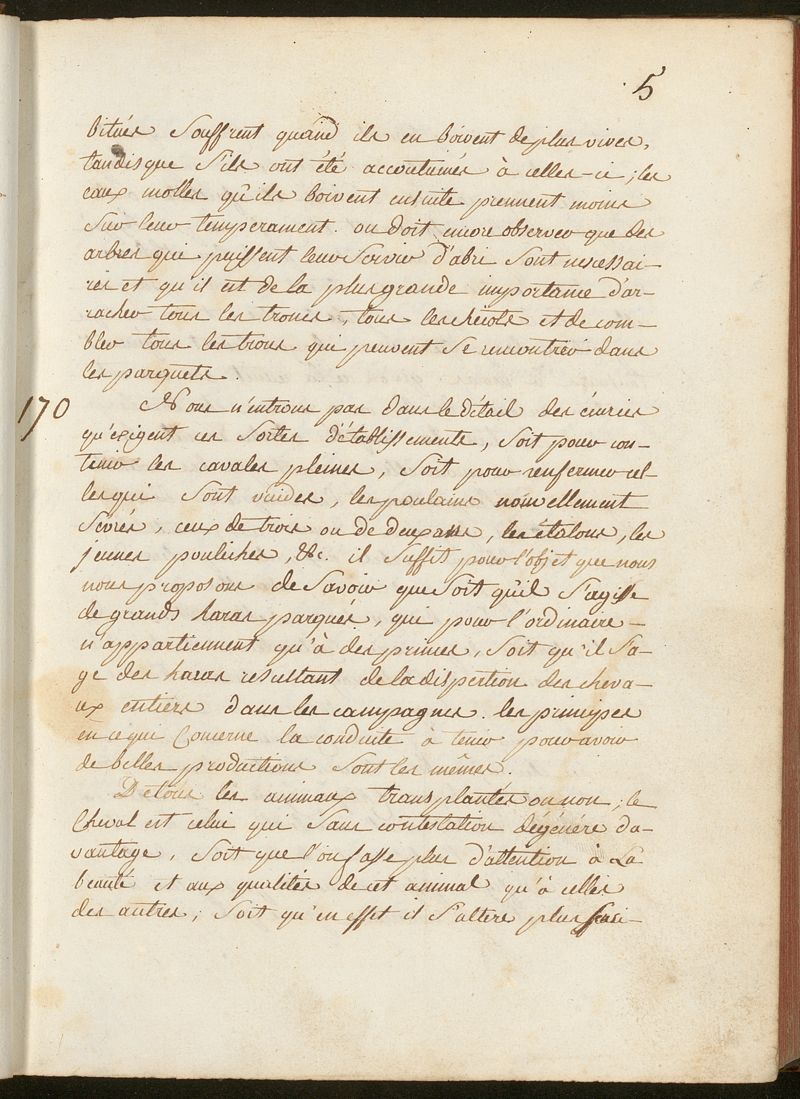 5
bitués Souffrent quand ils en boivent de plus vives,
tandis que S'ils ont été accoutumés à celles-ci; les
eaux molles qu'ils boivent ensuite prennent moins
Sur leur temperament. on doit encore observer que des
arbres qui puissent leur Servir d'abri Sont necessai-
res et qu'il est de la plus grande importance d'ar-
racher tous les troncs, tous les chicots et de com-
bler tous les trous qui peuvent Se rencontrer dans
les parquets.
170
Nous n'entrons pas dans le détail des écuries
qu'exigent ces Sortes d'établissements, Soit pour con-
tenir les cavales pleines, Soit pour renfermer cel-
les qui Sont vuides, les poulains nouvellement
Sevrés, ceux de trois ou de deux ans, les étalons, les
jeunes pouliches, &c. il Suffit pour l'objet que nous
nous proposons de Savoir que Soit qu'il S'agisse
de grands haras parqués, qui pour l'ordinaire -
n'appartiennent qu'à des princes, Soit qu'il Sa-
ge des haras resultant de la dispertion des cheva-
ux entiers dans les campagnes. les principes
en ce qui Concerne la conduite à tenir pour avoir
de belles productions Sont les mêmes.
De tous les animaux transplantés ou non; le
Cheval est celui qui Sans contestation dégénére da-
vantage, Soit que l'on fasse plus d'attention à La
beauté et aux qualités de cet animal qu'à celles
des autres; Soit qu'en effet il S'altere plus